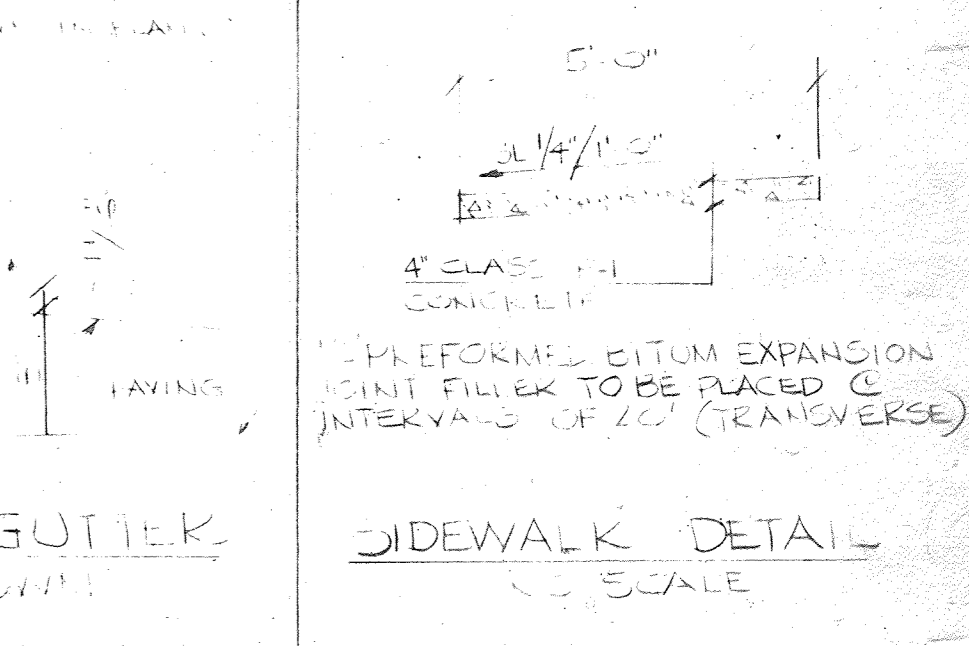 5'-0"
SL 1/4"/1'-0"
4" CLASS
CONCRETE
PREFORMED BITUM EXPANSION
JOINT FILLER TO BE PLACED @
INTERVALS OF 20' (TRANSVERSE)
SIDEWALK DETAIL
NO SCALE
PAVING
GUTTER